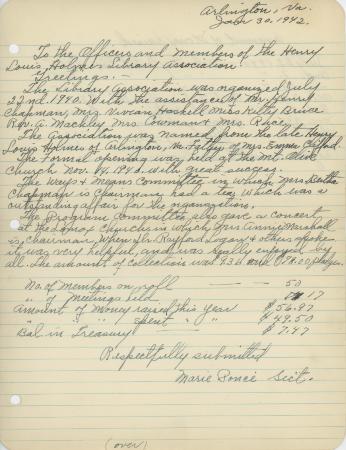 Arlington, Va.
Jan 30. 1942.
To the Officers and Members of the Henry
Louis Holmes Library Association:
Greetings. —
The Library Association was organized July
22nd. 1940. With the assistance of Mr. Henry
Chapman, Mrs. Vivian Haskell Miss Kitty Bruce
Rev. G. Mackley Mrs. Bowman & Mrs. Race.
The Association was named from the late Henry
Louis Holmes of Arlington, Va. Father of Mrs. Emma Clifford.
The Formal opening was held at the Mt. Olive
Church Nov. 14, 1940. with great success.
The Ways & Means Committee in which Mrs.
Chapman is Chairman, had a tea which was a
outstanding affair for the organization.
The Program Committee also gave a concert
at the Lomax Church in which Mrs. Annie Marshall
is chairman, When Dr. Rayford Logan & others spoke
it was very helpful, and was really enjoyed by
all. The amounts of collection was 9.36 and
No. of Members on roll — — 50
" of Meetings held 17
Amount of Money raised this year $ 56.97
" " " spent " " $ 49.50
Bal in Treasury — — $ 7.47
Respectfully submitted
Marie Sect.
(over)